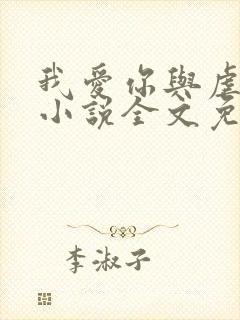 我愛你與虐
小說全文免
李淑子